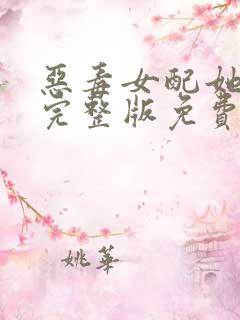 惡毒女配她
完整版免費
姚華